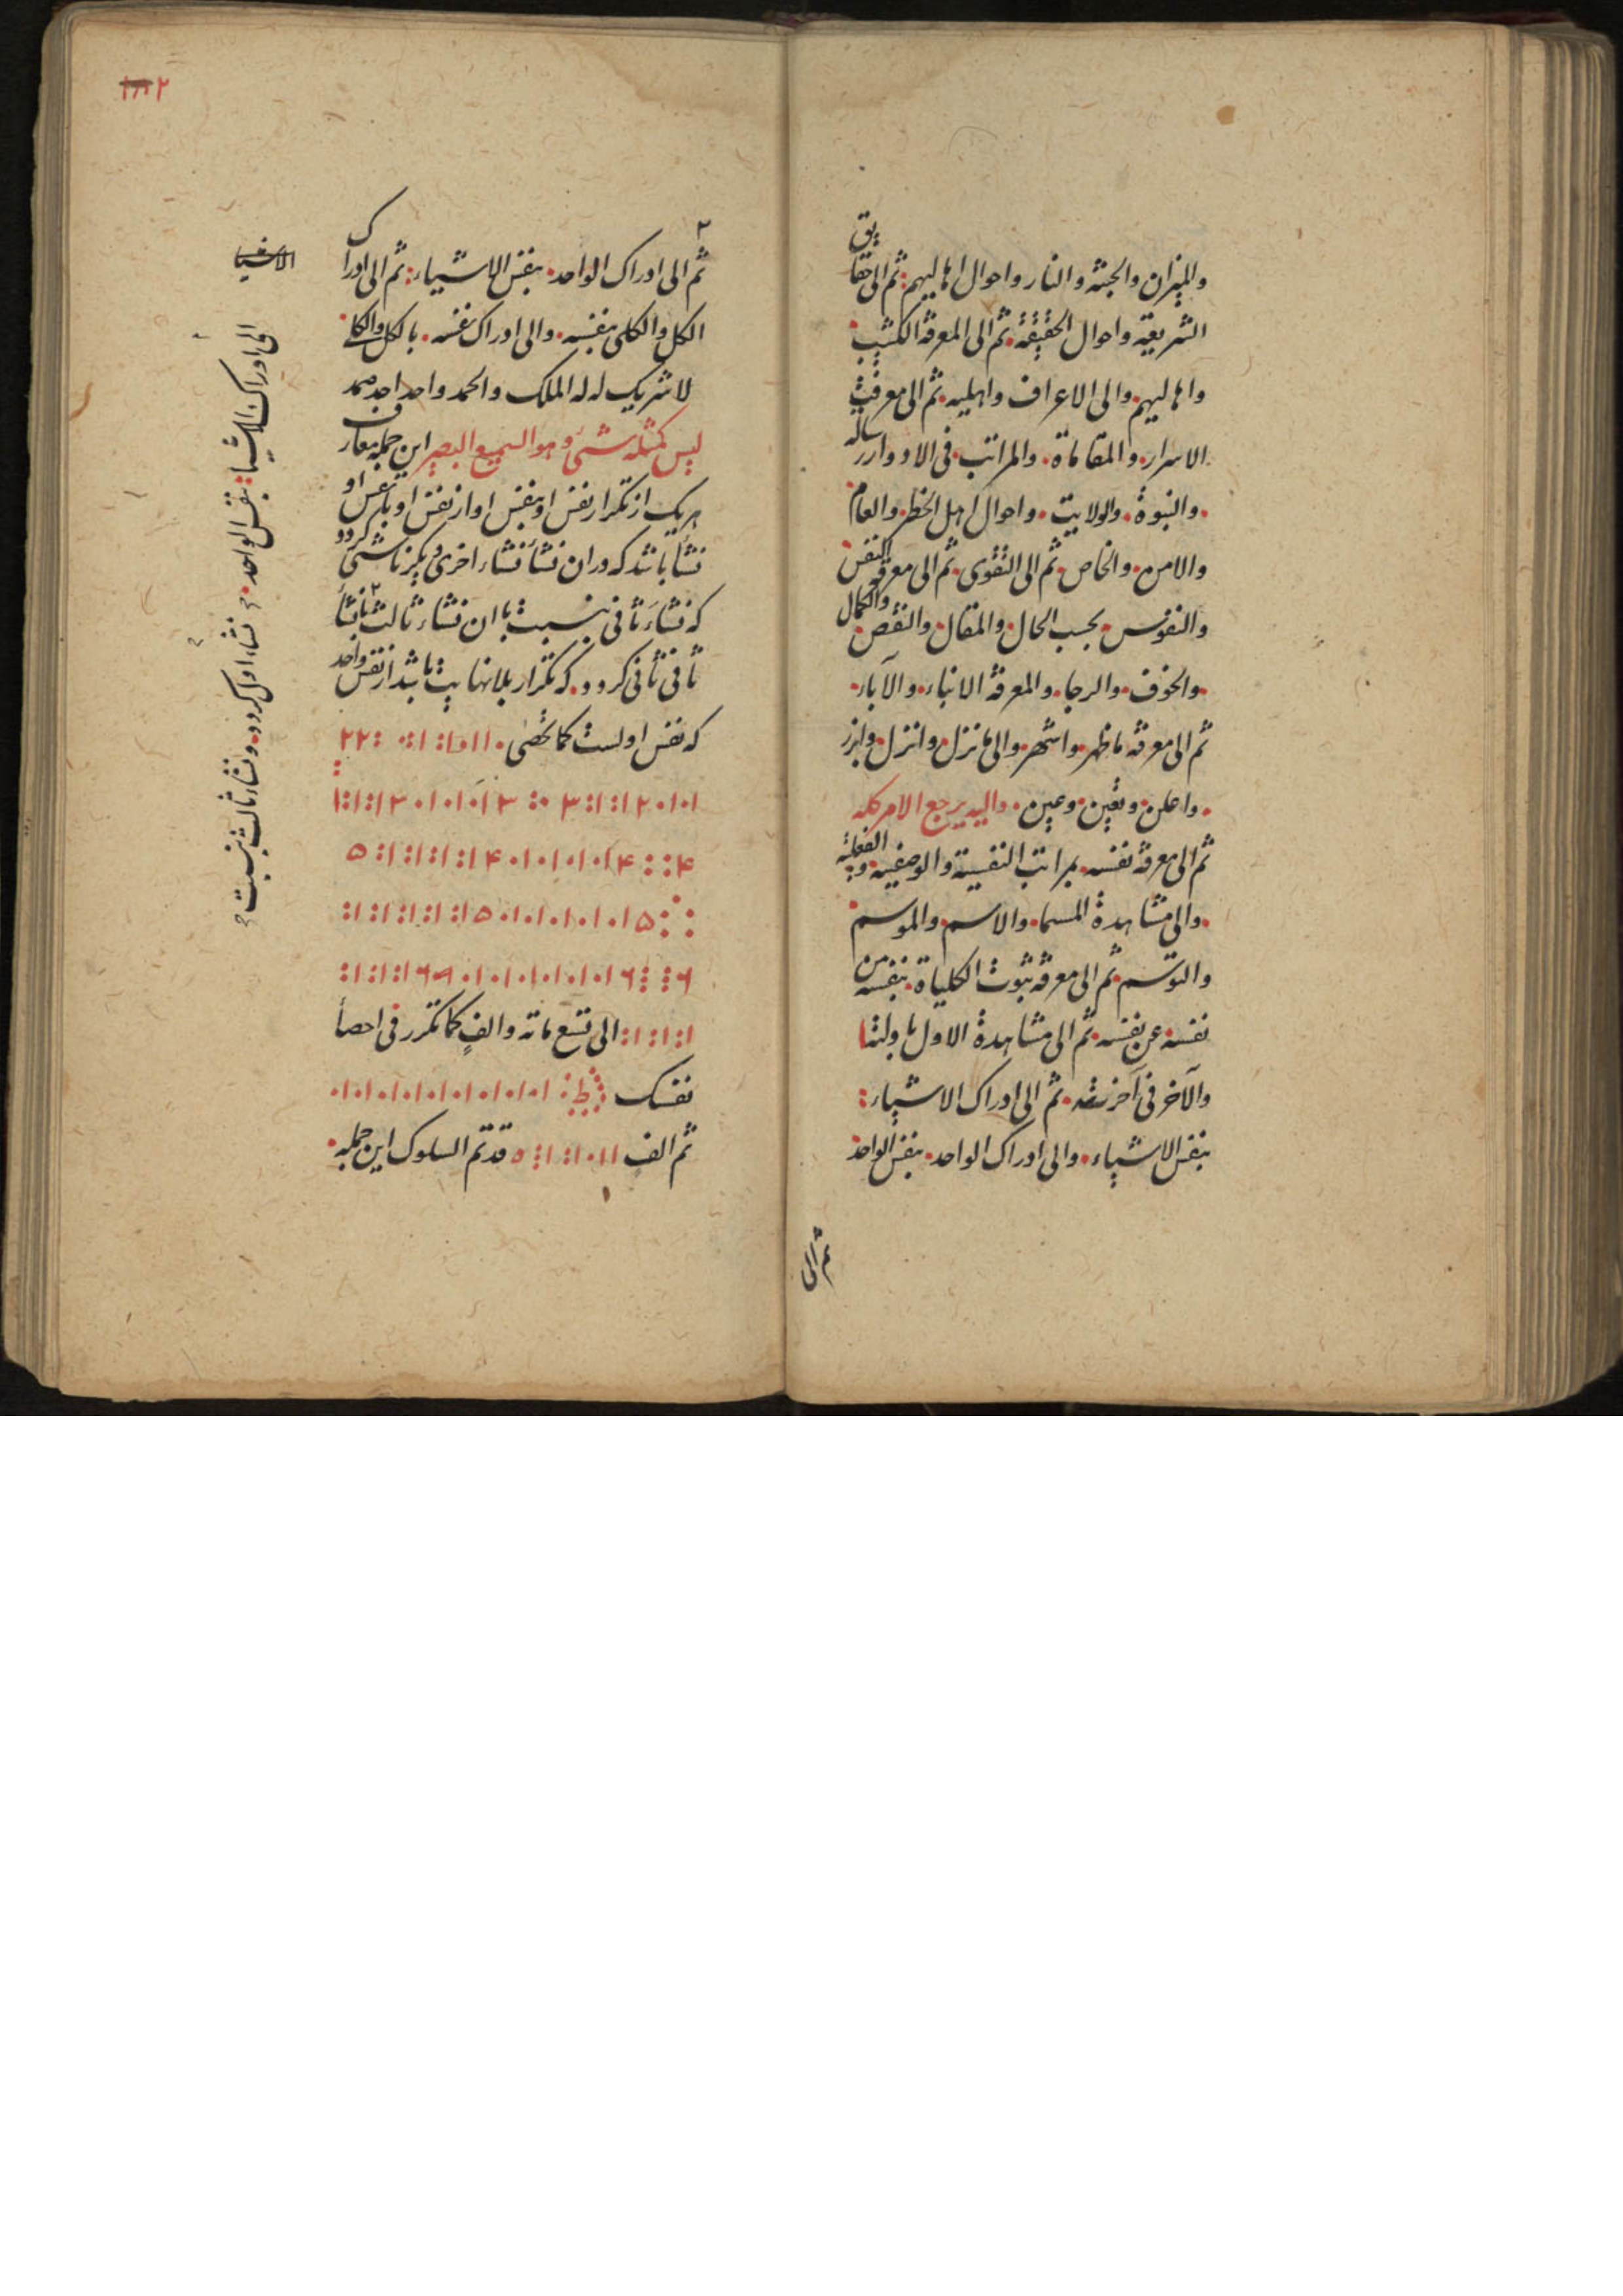 والميزان والجنة والنار واحوال اهاليهم ثم الى حقايق
الشريعة واحوال الحقيقة ثم الى المعرفة الكثيب
واهاليهم والى الاعراف واهليه ثم الى معرفت
الاسرار والمقاماة والمراتب فى الادوار رساله
والنبوة والولايت واحوال اهل الخطر والعام
والامن والخاص ثم الى التقوى ثم الى معرفة النفس
والنفوس بحسب الحال والمقال والنقص والكمال
والخوف والرجا والمعرفة الانباء والآباء
ثم الى معرفة ما ظهر واشهر والى ما نزل وانزل وابرز
واعلن وتعين وعين واليه يرجع الامر كله
ثم الى معرفة نفسه بمراتب النفسية والوصفية والفعلية
والى مشاهدة المسما والاسم والموسم
والتوسم ثم الى معرفة ثبوت الكلياة بنفسه من
نفسه عن نفسه ثم الى مشاهدة الاول باولتا
والآخر فى آخرته ثم الى ادراك الاشياء
بنفس الاشياء والى ادراك الواحد بنفس الواحد
ثم الى
١٨٢
٢
ثم الى ادراك الواحد بنفس الاشياء ثم الى ادراك
الكل والكلى بنفسه والى ادراك نفسه بالكل والكلى
لا شريك له له الملك والحمد واحد احد صمد
ليس كمثله شئ وهو السميع البصير اين جمله معارف
هريك از تكرار نفس او بنفس او از نفس او بنفس او
نشأ باشد كه در ان نشأ نشاء اخرى ديكر ناشى كردد
كه نشاء ثانى بنسبت با ان نشاء ثالث با نشأ
ثانى ثانى كردد كه تكرار بلا نهايت باشد از نفس واحد
كه نفس اولست كما تحصى ۰۱۱۰۱:۱:۰ :۲۲
۱۰۱۰۲۱:۱:۳ ۳۱۰۱۰۱۰۳۱:۱:۱
۴::۴۱۰۱۰۱۰۱۰۴۱:۱:۱:۱:۵
:۵۱۰۱۰۱۰۱۰۱۰۵۱:۱:۱:۱:۱:
۶::۶۱۰۱۰۱۰۱۰۱۰۱۰۶۱:۱:۱:
۱:۱:۱: الى تسع مائة والف كما تكرر فى احصا
نفسك ۱۰۱۰۱۰۱۰۱۰۱۰۱۰۱۰۱۰
ثم الف ۱۱۰۱:۱:۵ قد تم السلوك اين جمله
الاشيا
الى ادراك الاشياء بنفس الواحد نشاء اول كردد ونشاء ثالث بنسبت